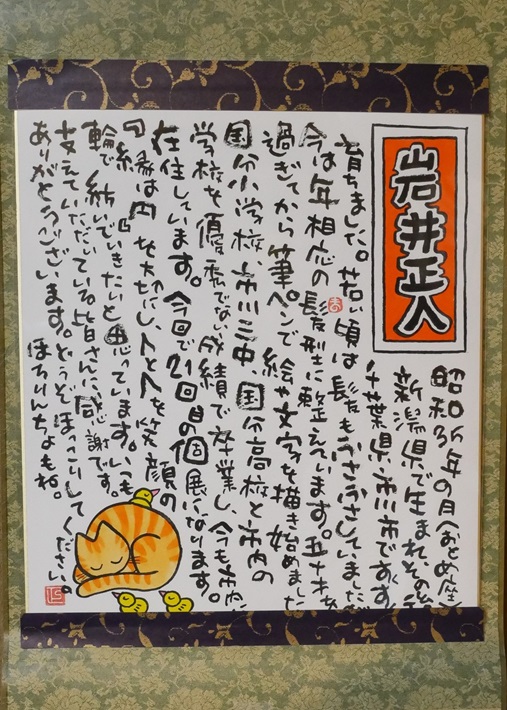 岩井正人
昭和36年9月(おとめ座)
新潟県で生まれ、その後
千葉県市川市ですくすく
育ちました。若い頃は髪もふさふさしていましたが
今は年相応の髪型に整えています。五十才を
過ぎてから筆ペンで絵や文字を描き始めました
国分小学校、市川三中、国分高校と市内の
学校を優秀でない成績で卒業し、今も市内
在住しています。今回で21回目の個展になります。
『縁は円』を大切にし、人と人を笑顔の
輪で紡いでいきたいと思っています。いつも
支えていただいている皆さんに感謝です。
ありがとうございます。どうぞほっこりしてください。
ほちりんちょもね。